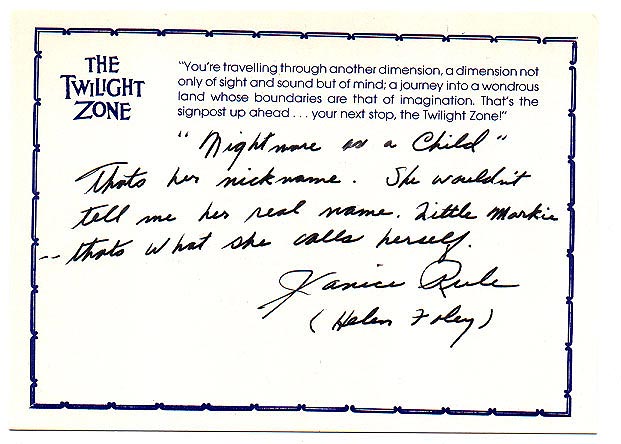 THE
TWILIGHT
ZONE
"You're travelling through another dimension, a dimension not
only of sight and sound but of mind; a journey into a wondrous
land whose boundaries are that of imagination. That's the
signpost up ahead . . . your next stop, the Twilight Zone!"
"Nightmare as a Child"
Thats her nickname. She wouldn't
tell me her real name. Little Markie
-- thats what she calls herself.
Janice Rule
(Helen Foley)